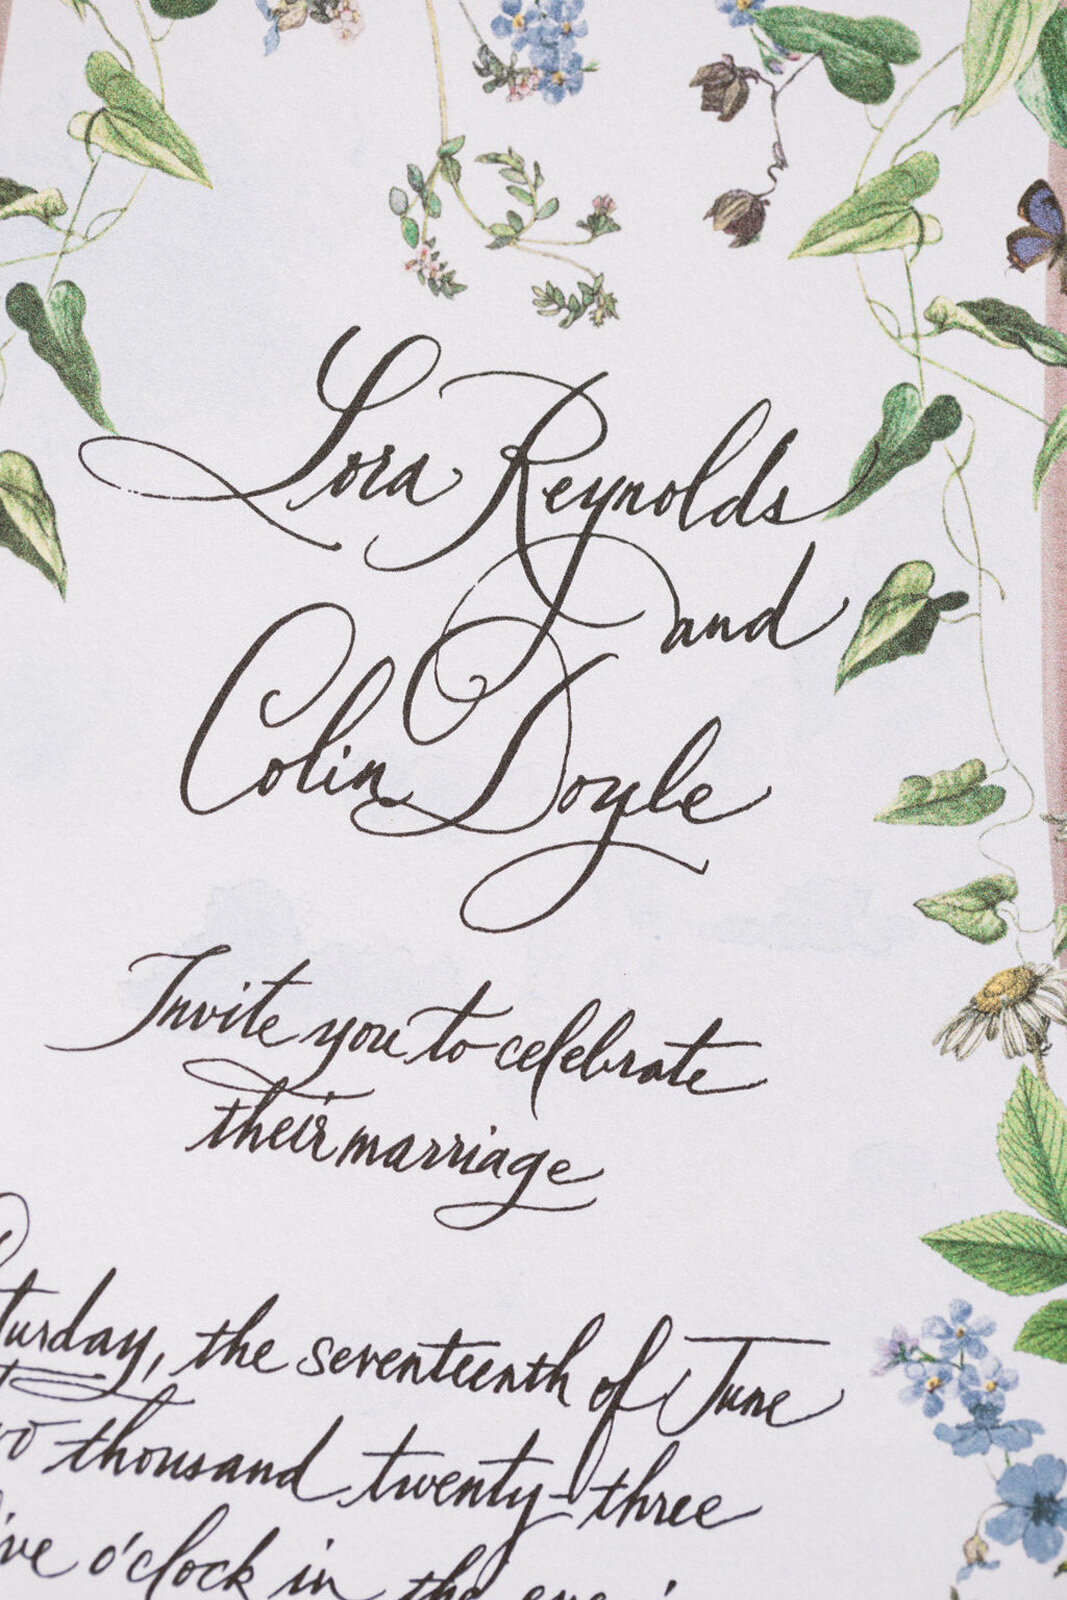 Lora Reynolds
and
Colin Doyle
Invite you to celebrate
their marriage
aturday, the seventeenth of June
wo thousand twenty-three
ive o'clock in the eveni